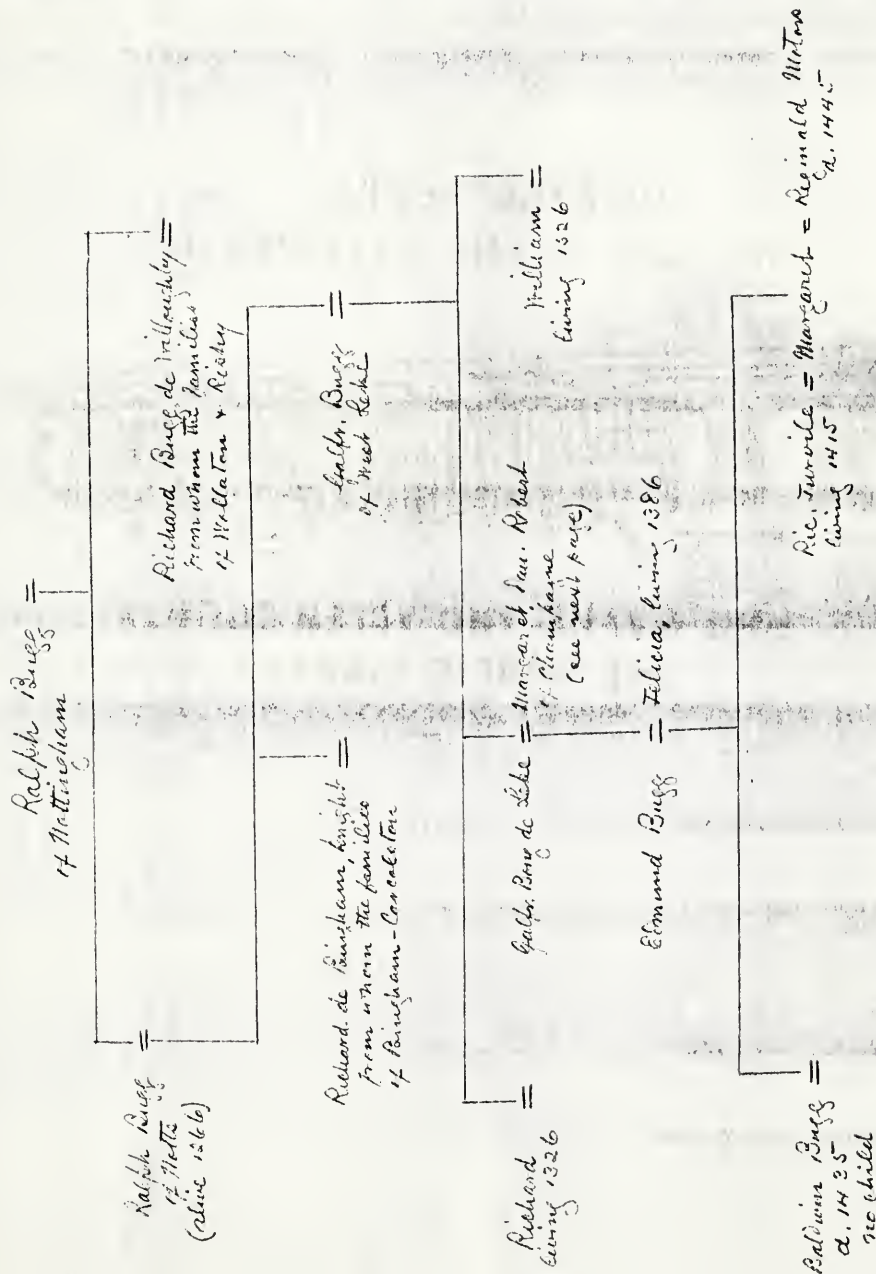 Ralph Bugg
of Nottingham
Ralph Bugg
of Notts
(alive 1266)
Richard Bugg, de Willoughby
from whom the families
of Wollaton & Risley
Richard de Bingham, knight
from whom the families
of Bingham-
Galfr. Bugg
of West Leke
Richard
living 1326
Galfr. Bugg de Leke = Margaret Dau. Robert
of Champaine
(see next page)
William
living 1326
Edmund Bugg = Felicia, living 1386
Baldwin Bugg
d. 1435
no child
Ric. Turvile = Margaret = Reginald Motons
living 1415
d. 1445